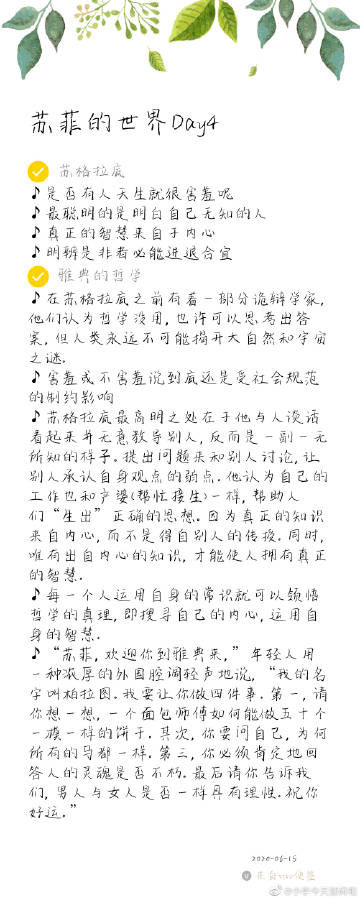 苏菲的世界Day4
苏格拉底
♪是否有人天生就很害羞呢
♪最聪明的是明白自己无知的人
♪真正的智慧来自于内心
♪明辨是非者必能进退合宜
雅典的哲学
♪在苏格拉底之前有着一部分诡辩学家,
他们认为哲学没用,也许可以思考出答
案,但人类永远不可能揭开大自然和宇宙
之谜.
♪害羞或不害羞说到底还是受社会规范
的制约影响
♪苏格拉底最高明之处在于他与人谈话
看起来并无意教导别人,反而是一副一无
所知的样子.提出问题来和别人讨论,让
别人承认自身观点的弱点.他认为自己的
工作也和产婆(帮忙接生)一样,帮助人
们“生出”正确的思想.因为真正的知识
来自内心,而不是得自别人的传授.同时,
唯有出自内心的知识,才能使人拥有真正
的智慧.
♪每一个人运用自身的常识就可以领悟
哲学的真理,即搜寻自己的内心,运用自
身的智慧.
♪“苏菲,欢迎你到雅典来,”年轻人用
一种浓厚的外国腔调轻声地说,“我的名
字叫柏拉图.我要让你做四件事.第一,请
你想一想,一个面包师傅如何能做五十个
一模一样的饼干.其次,你要问自己,为何
所有的马都一样.第三,你必须肯定地回
答人的灵魂是否不朽.最后请你告诉我
们,男人与女人是否一样具有理性.祝你
好运.”
2020-06-15
来自vivo便签